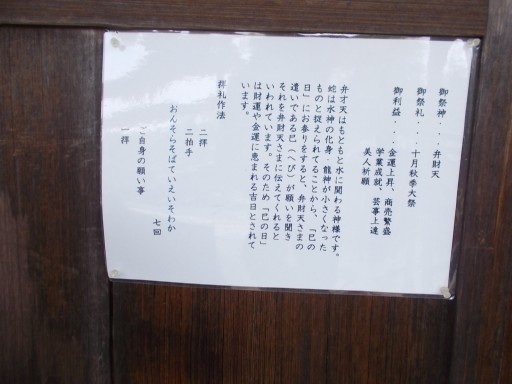 御祭神・・・弁財天
御祭礼・・・十月秋季大祭
御利益・・・金運上昇、商売繁盛
学業成就、芸事上達
美人祈願
弁才天はもともと水に関わる神様です。
蛇は水神の化身・龍神が小さくなった
ものと捉えられてることから、「巳の
日」にお参りをすると、弁財天さまの
遣いである巳(へび)が願いを聞き
それを弁財天さまに伝えてくれると
いわれています。そのため「巳の日」
は財運や金運に恵まれる吉日とされて
います。
拝礼作法
二拝
二拍手
おんそらそばていえいそわか
七回
ご自身の願い事
一拝